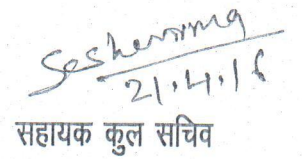 21.4.16
सहायक कुल सचिव